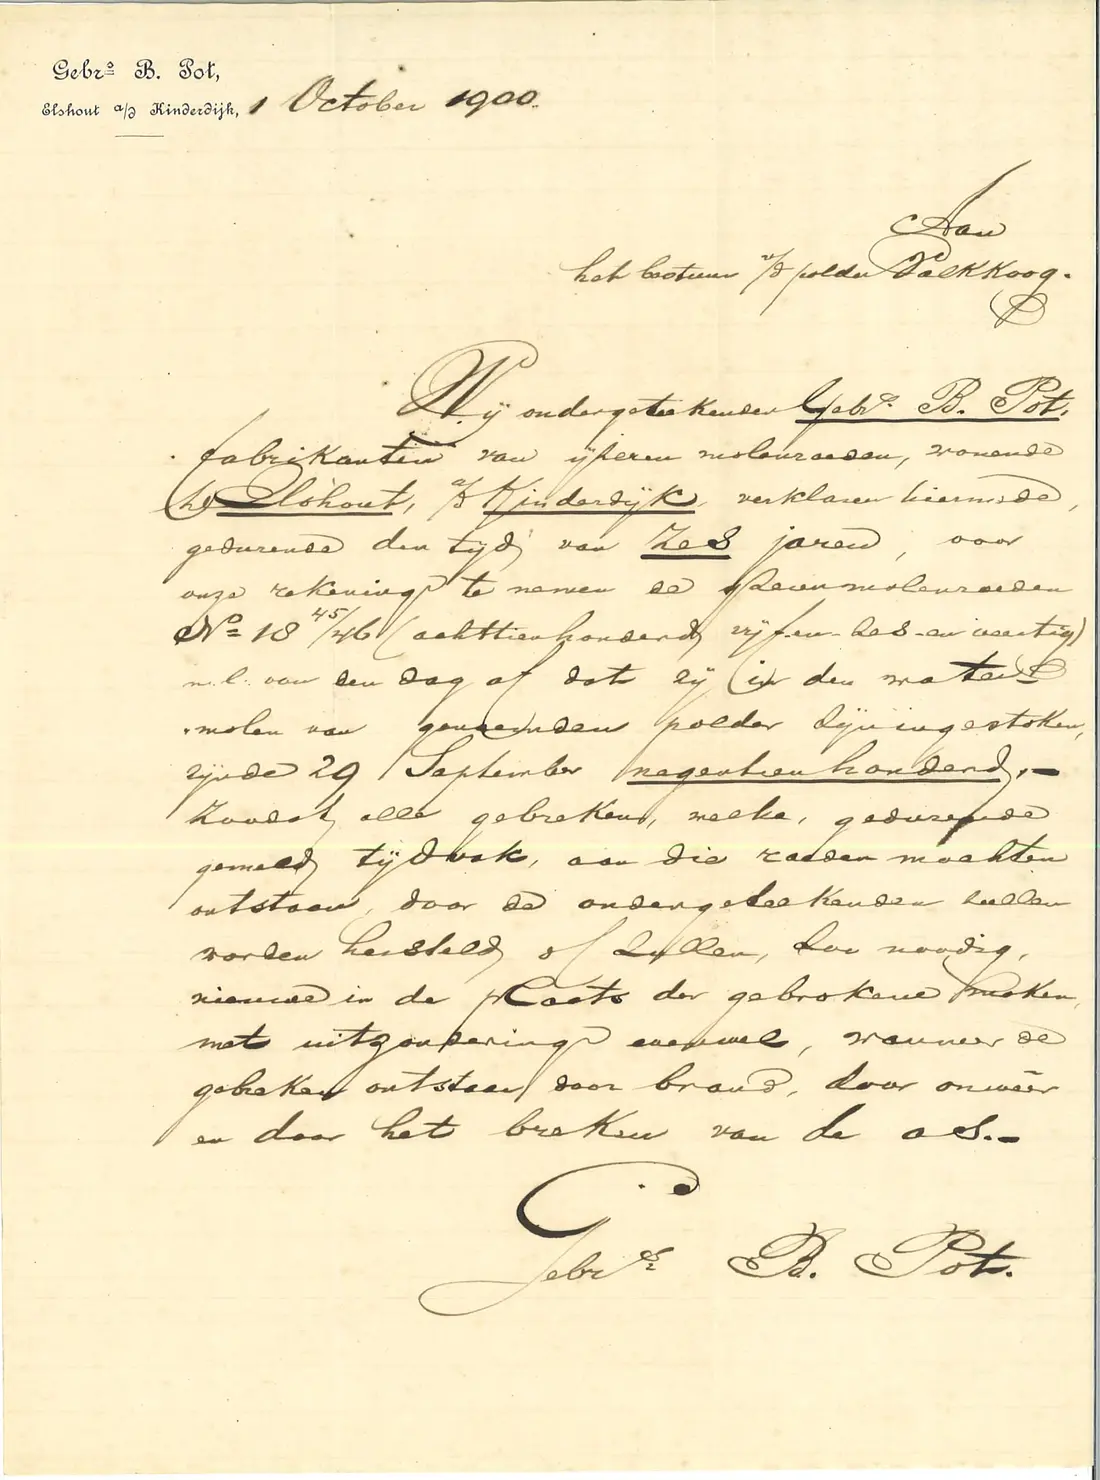 Gebrs B. Pot,
Elshout a/d Kinderdijk, 1 October 1900.
Aan
het bestuur v/d polder Valkkoog.
Wij ondergeteekenden Gebrs. B. Pot.
fabrikanten van ijzeren molenroeden, wonende
te Elshout, a/d Kinderdijk, verklaren hiermede,
gedurende den tijd van Zes jaren, voor
onze rekening te nemen de ijzeren molenroeden
No 18 45/46 (achttienhonderd vijf-en-zes-en veertig)
n.l. van den dag af dat zij in den water
molen van genoemden polder zijn ingestoken,
zijnde 29 September negentienhonderd.-
Zoodat alle gebreken, welke, gedurende
gemeld tijdvak, aan die roeden mochten
ontstaan, door de ondergeteekenden zullen
worden hersteld of zullen, zoo noodig,
nieuwe in de plaats der gebrokene maken,
met uitzondering evenwel, wanneer de
gebreken ontstaan door brand, door onweêr
en door het breken van de as.-
Gebrs. B. Pot.